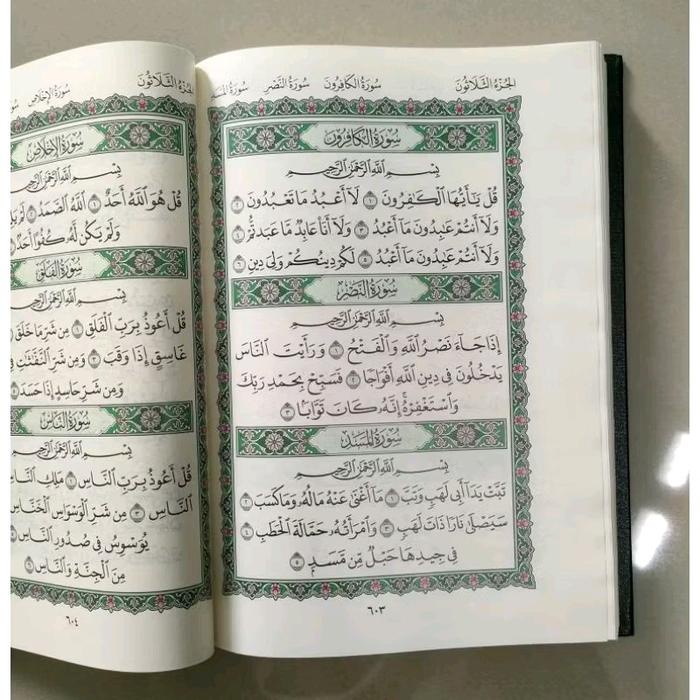 الجزء الثلاثون سورة الكافرون سورة النصر سورة المسد
سُورَةُ الكَافِرُونَ
بِسْمِ اللَّهِ الرَّحْمَٰنِ الرَّحِيمِ
قُلْ يَٰٓأَيُّهَا ٱلْكَٰفِرُونَ ١ لَآ أَعْبُدُ مَا تَعْبُدُونَ ٢
وَلَآ أَنتُمْ عَٰبِدُونَ مَآ أَعْبُدُ ٣ وَلَآ أَنَا۠ عَابِدٌ مَّا عَبَدتُّمْ ٤
وَلَآ أَنتُمْ عَٰبِدُونَ مَآ أَعْبُدُ ٥ لَكُمْ دِينُكُمْ وَلِىَ دِينِ ٦
سُورَةُ النَّصْرِ
بِسْمِ اللَّهِ الرَّحْمَٰنِ الرَّحِيمِ
إِذَا جَآءَ نَصْرُ ٱللَّهِ وَٱلْفَتْحُ ١ وَرَأَيْتَ ٱلنَّاسَ
يَدْخُلُونَ فِى دِينِ ٱللَّهِ أَفْوَاجًا ٢ فَسَبِّحْ بِحَمْدِ رَبِّكَ
وَٱسْتَغْفِرْهُ إِنَّهُۥ كَانَ تَوَّابًۢا ٣
سُورَةُ المَسَدِ
بِسْمِ اللَّهِ الرَّحْمَٰنِ الرَّحِيمِ
تَبَّتْ يَدَآ أَبِى لَهَبٍ وَتَبَّ ١ مَآ أَغْنَىٰ عَنْهُ مَالُهُۥ وَمَا كَسَبَ ٢
سَيَصْلَىٰ نَارًا ذَاتَ لَهَبٍ ٣ وَٱمْرَأَتُهُۥ حَمَّالَةَ ٱلْحَطَبِ ٤
فِى جِيدِهَا حَبْلٌ مِّن مَّسَدٍۭ ٥
٦٠٣
الجزء الثلاثون سورة الإخلاص
سُورَةُ الإِخْلَاصِ
بِسْمِ اللَّهِ الرَّحْمَٰنِ الرَّحِيمِ
قُلْ هُوَ ٱللَّهُ أَحَدٌ ١ ٱللَّهُ ٱلصَّمَدُ ٢ لَمْ
وَلَمْ يَكُن لَّهُۥ كُفُوًا أَحَدٌۢ
سُورَةُ الفَلَقِ
بِسْمِ اللَّهِ الرَّحْمَٰنِ الرَّحِيمِ
قُلْ أَعُوذُ بِرَبِّ ٱلْفَلَقِ ١ مِن شَرِّ مَا خَلَقَ
غَاسِقٍ إِذَا وَقَبَ ٣ وَمِن شَرِّ ٱلنَّفَّٰثَٰتِ فِى
وَمِن شَرِّ حَاسِدٍ إِذَا حَسَدَ
سُورَةُ النَّاسِ
بِسْمِ اللَّهِ الرَّحْمَٰنِ الرَّحِيمِ
قُلْ أَعُوذُ بِرَبِّ ٱلنَّاسِ ١ مَلِكِ ٱلنَّاسِ
ٱلنَّاسِ ٣ مِن شَرِّ ٱلْوَسْوَاسِ ٱلْخَنَّاسِ
يُوَسْوِسُ فِى صُدُورِ ٱلنَّاسِ
مِنَ ٱلْجِنَّةِ وَٱلنَّاسِ
٦٠٤